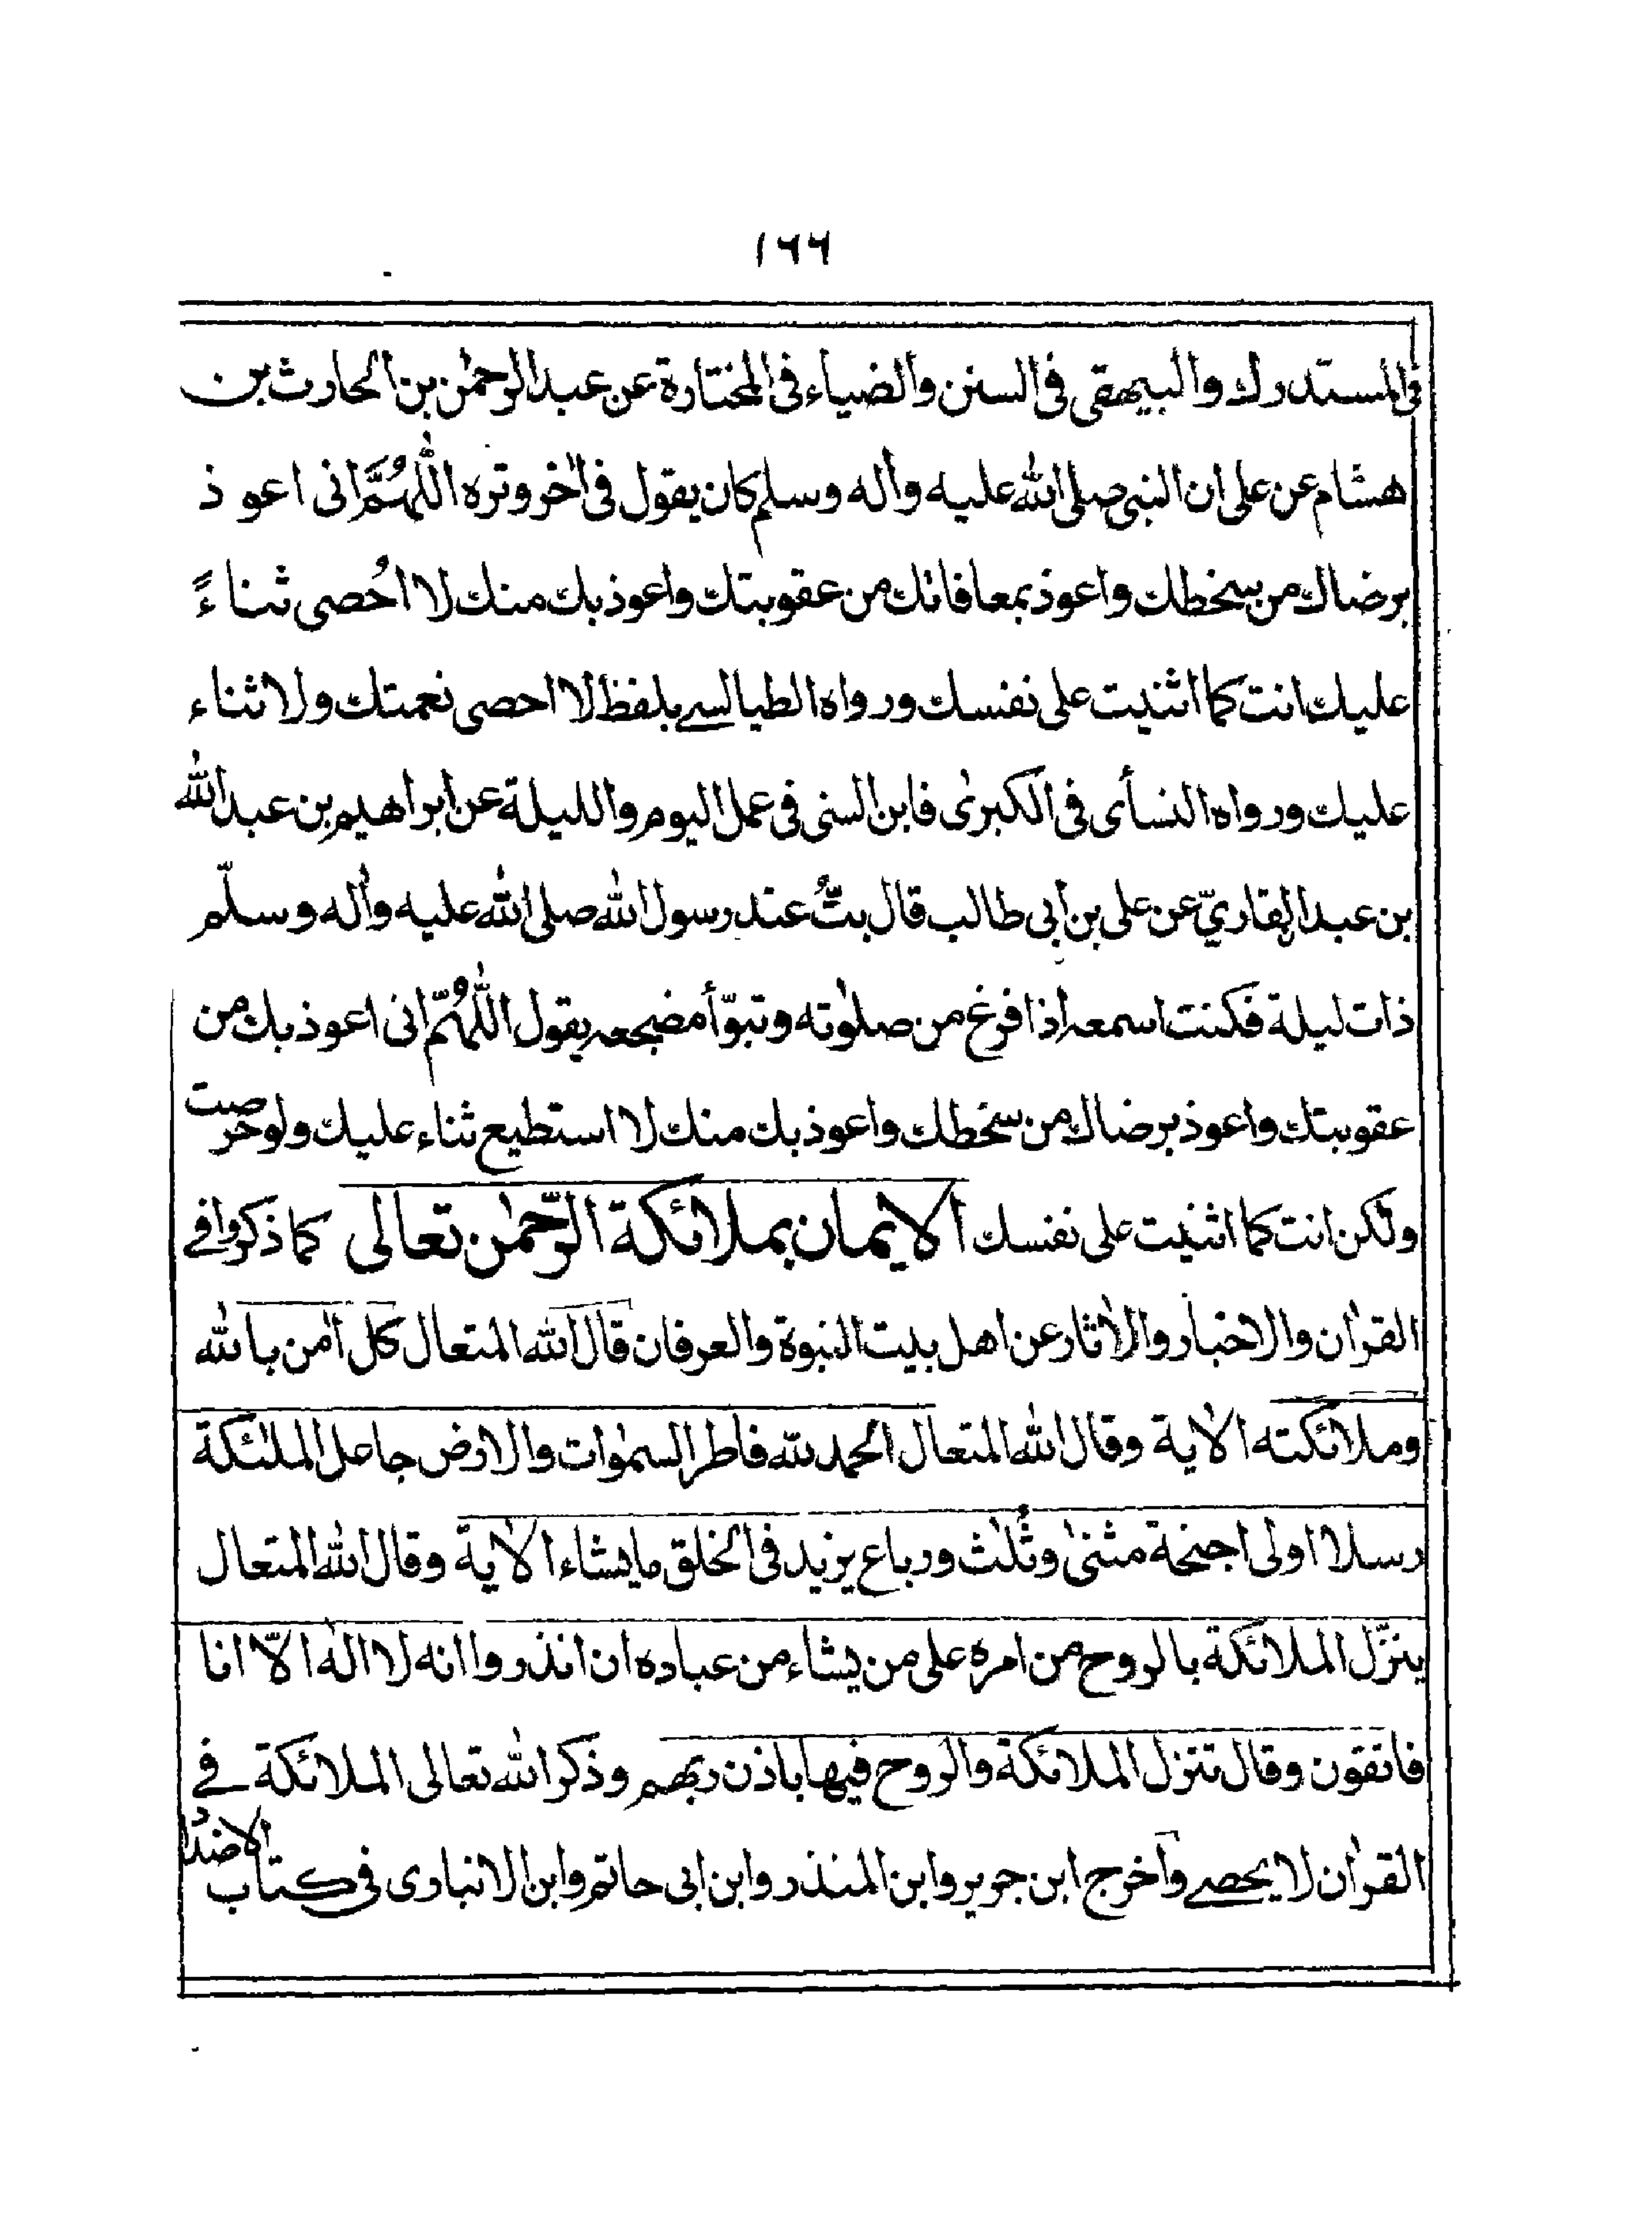 ١٦٦
فى المستدرك والبيهقى فى السنن والضياء فى المختارة عن عبد الرحمٰن بن الحارث بن
هشام عن على ان النبى صلى الله عليه واٰله وسلم كان يقول فى اٰخر وتره اللّٰهُمَّ انى اعوذ
برضاك من سخطك واعوذ بمعافاتك من عقوبتك واعوذ بك منك لا اُحصى ثناءً
عليك انت كما اثنيت على نفسك ورواه الطيالسے بلفظ لا احصى نعمتك ولا ثناء
عليك ورواه النسأى فى الكبرىٰ فابن السنى فى عمل اليوم والليلة عن ابراهيم بن عبد الله
بن عبد القاريّ عن على بن أبى طالب قال بتُّ عند رسول الله صلى الله عليه واٰله وسلّم
ذات ليلة فكنت اسمعه اذا فرغ من صلوٰته وتبوّأ مضجعه يقول اللّٰهُمّ انى اعوذ بك من
عقوبتك واعوذ برضاك من سخطك واعوذ بك منك لا استطيع ثناء عليك ولو حرصت
ولٰكن انت كما اثنيت على نفسك الايمان بملائكة الرّحمٰن تعالى كما ذكروا فے
القراٰن والاخبار والاٰثار عن اهل بيت النبوة والعرفان قال الله المتعال كل اٰمن بالله
وملائكته الاٰية وقال الله المتعال الحمد لله فاطر السمٰوات والارض جاعل الملٰئكة
رسلا اولى اجنحة مثنىٰ وثُلٰث ورباع يزيد فى الخلق ما يشاء الاٰية وقال الله المتعال
ينزّل الملائكة بالروح من امره على من يشاء من عباده ان انذروا انه لا الٰه الّا انا
فاتقون وقال تنزل الملائكة والروح فيها باذن ربهم وذكر الله تعالى الملائكة فے
القراٰن لا يحصے واخرج ابن جرير وابن المنذر وابن ابى حاتم وابن الانبارى فى كتاب الاضداد